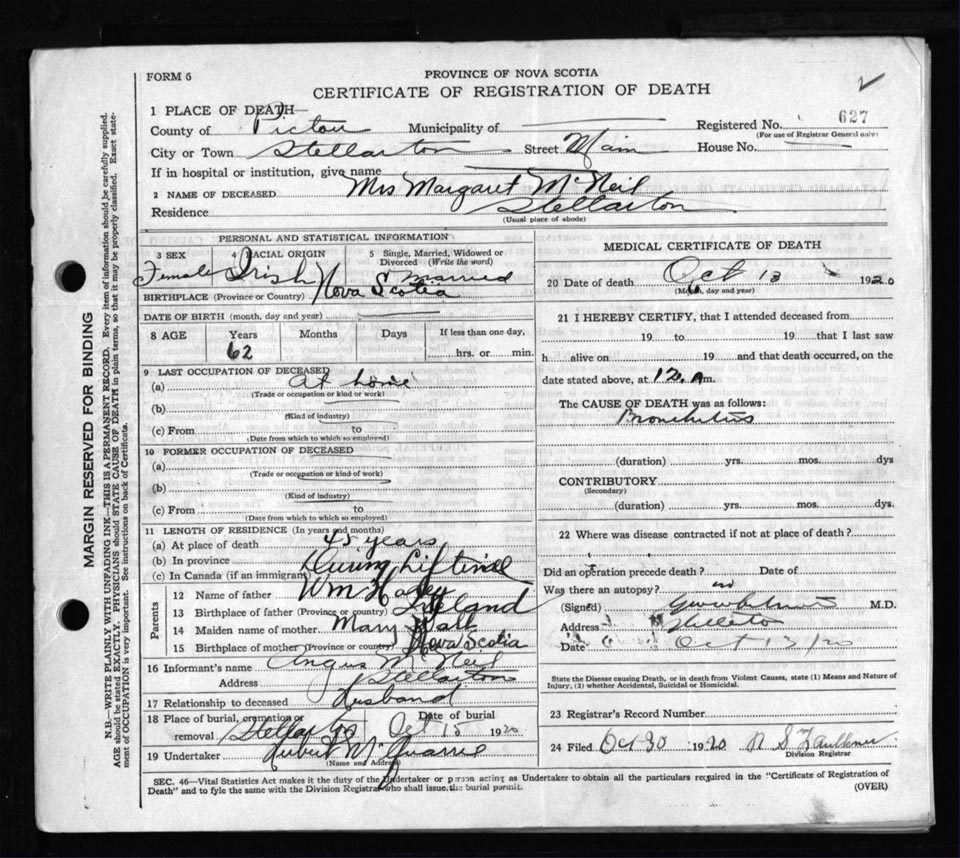 FORM 6
PROVINCE OF NOVA SCOTIA
CERTIFICATE OF REGISTRATION OF DEATH
1 PLACE OF DEATH—
County of Pictou Municipality of Registered No. 627
(For use of Registrar General only)
City or Town Stellarton Street Main House No.
If in hospital or institution, give name
2 NAME OF DECEASED Mrs Margaret McNeil
Residence Stellarton
(Usual place of abode)
PERSONAL AND STATISTICAL INFORMATION
3 SEX 4 RACIAL ORIGIN 5 Single, Married, Widowed or Divorced (Write the word)
Female Irish Married
BIRTHPLACE (Province or Country) Nova Scotia
DATE OF BIRTH (month, day and year)
8 AGE Years Months Days If less than one day,
62 hrs. or min.
9 LAST OCCUPATION OF DECEASED
(a) At home
(Trade or occupation or kind of work)
(b)
(Kind of industry)
(c) From to
(Date from which to which so employed)
10 FORMER OCCUPATION OF DECEASED
(a)
(Trade or occupation or kind of work)
(b)
(Kind of industry)
(c) From to
(Date from which to which so employed)
11 LENGTH OF RESIDENCE (In years and months)
(a) At place of death 45 years
(b) In province During Liftime
(c) In Canada (if an immigrant)
Parents
12 Name of father Wm
13 Birthplace of father (Province or country) Ireland
14 Maiden name of mother Mary
15 Birthplace of mother (Province or country) Nova Scotia
16 Informant's name Angus McNeil
Address Stellarton
17 Relationship to deceased Husband
18 Place of burial, cremation or removal Stellarton Date of burial Oct 15 1920
19 Undertaker Hubert McQuarrie
(Name and Address)
MEDICAL CERTIFICATE OF DEATH
20 Date of death Oct 13 1920
(Month, day and year)
21 I HEREBY CERTIFY, that I attended deceased from
19 to 19 that I last saw
h alive on 19 and that death occurred, on the
date stated above, at 12. A m.
The CAUSE OF DEATH was as follows:
Bronchitis
(duration) yrs. mos. dys
CONTRIBUTORY
(Secondary)
(duration) yrs. mos. dys
22 Where was disease contracted if not at place of death?
Did an operation precede death? Date of
Was there an autopsy? no
(Signed) M.D.
Address Stellarton
Date Oct 13/20
State the Disease causing Death, or in death from Violent Causes, state (1) Means and Nature of
Injury, (2) whether Accidental, Suicidal or Homicidal.
23 Registrar's Record Number
24 Filed Oct 30 1920 R S Faulkner
Division Registrar
SEC. 46—Vital Statistics Act makes it the duty of the Undertaker or person acting as Undertaker to obtain all the particulars required in the "Certificate of Registration of
Death" and to fyle the same with the Division Registrar who shall issue the burial permit. (OVER)
MARGIN RESERVED FOR BINDING
N.B.—WRITE PLAINLY WITH UNFADING INK—THIS IS A PERMANENT RECORD. Every item of information should be carefully supplied.
AGE should be stated EXACTLY. PHYSICIANS should STATE CAUSE OF DEATH in plain terms, so that it may be properly classified. Exact state-
ment of OCCUPATION is very important. See instructions on back of Certificate.